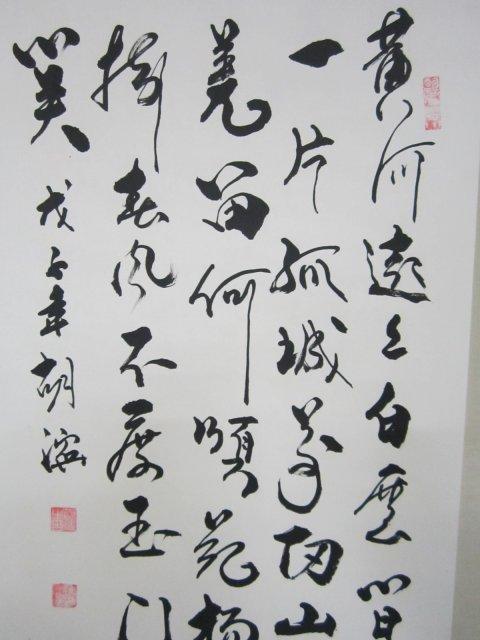 黄河遠上白雲間
一片孤城萬仞山
羌笛何須怨楊
柳春風不度玉门
關 戊子年胡